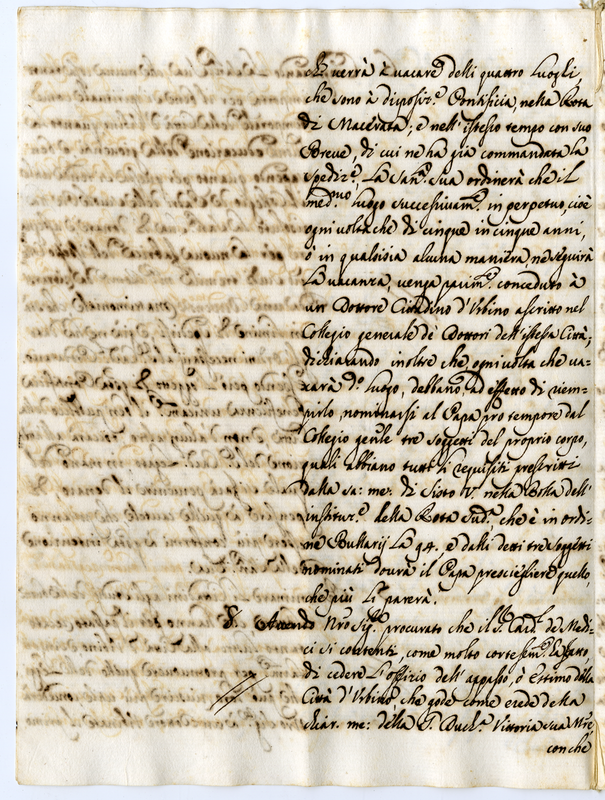 che verrà à vacare delli quattro Luoghi,
che sono à disposiz.e Pontificia, nella Rota
di Macerata; e nell'istesso tempo con suo
Breve, di cui ne ha già commandata la
spediz.e, La San.tà Sua ordinerà che il
med.mo Luogo successivam.e in perpetuo, cioè
ogni volta che di cinque in cinque anni,
ò in qualsisia alcuna maniera, ne seguirà
La vacanza, venga parim.e conceduto à
un Dottore Cittadino d'Urbino ascritto nel
Collegio generale de Dottori dell'istessa Città;
dichiarando inoltre che ogni volta che va-
carà d.o Luogo, debbano, ad effetto di riem-
pirlo, nominarsi al Papa pro tempore dal
Collegio gen.le tre soggetti del proprio corpo,
quali abbiano tutti li requisiti prescritti
dalla sa: me: di Sisto V. nella Bolla dell'
instituz.e della Rota sud.a, che è in ordi-
ne Bullarij La 94. e dalli detti tre Soggetti
nominati dovrà il Papa prescieglere quello
che più Li parerà.
8. Avendo N̄ro Sig.re procurato che il S. Card.l de Medi-
ci si contenti, come molto cortesem.e hà fatto
di cedere L'offizio dell'appasso, ò Estimo della
Città d'Urbino, che gode come erede della
chiar. me: della G. Duch.a Vittoria sua M̄re
con che